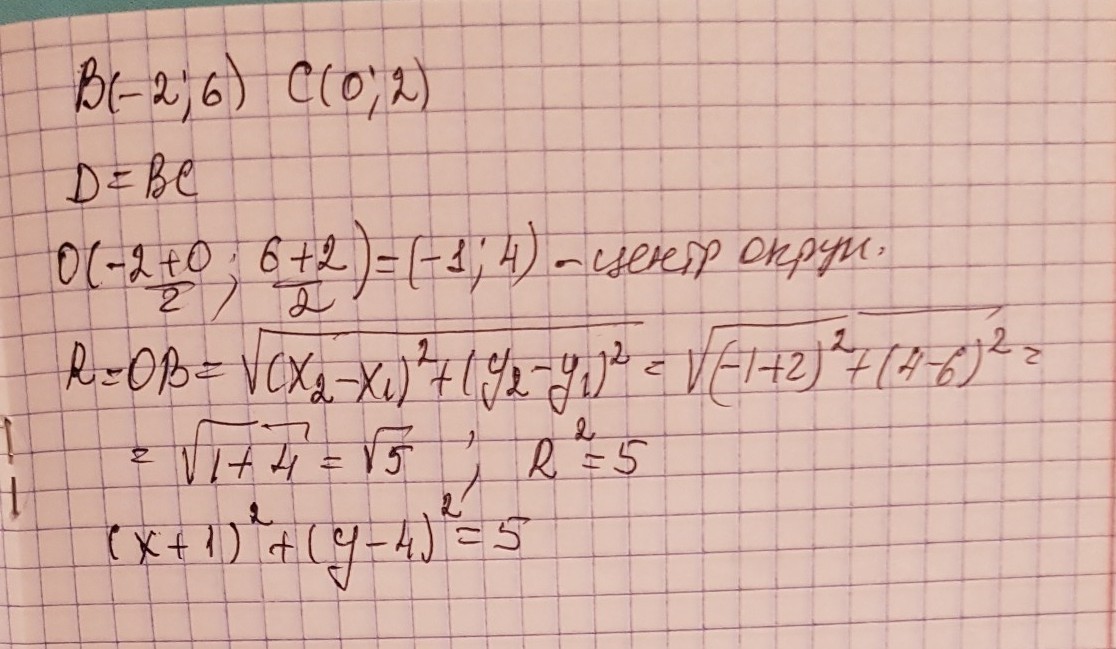 B(-2; 6) C(0; 2)
D = BC
O(-2+0/2; 6+2/2) = (-1; 4) - центр окруж.
R = OB = √(x₂-x₁)² + (y₂-y₁)² = √(-1+2)² + (4-6)² =
= √1+4 = √5 ; R² = 5
(x+1)² + (y-4)² = 5